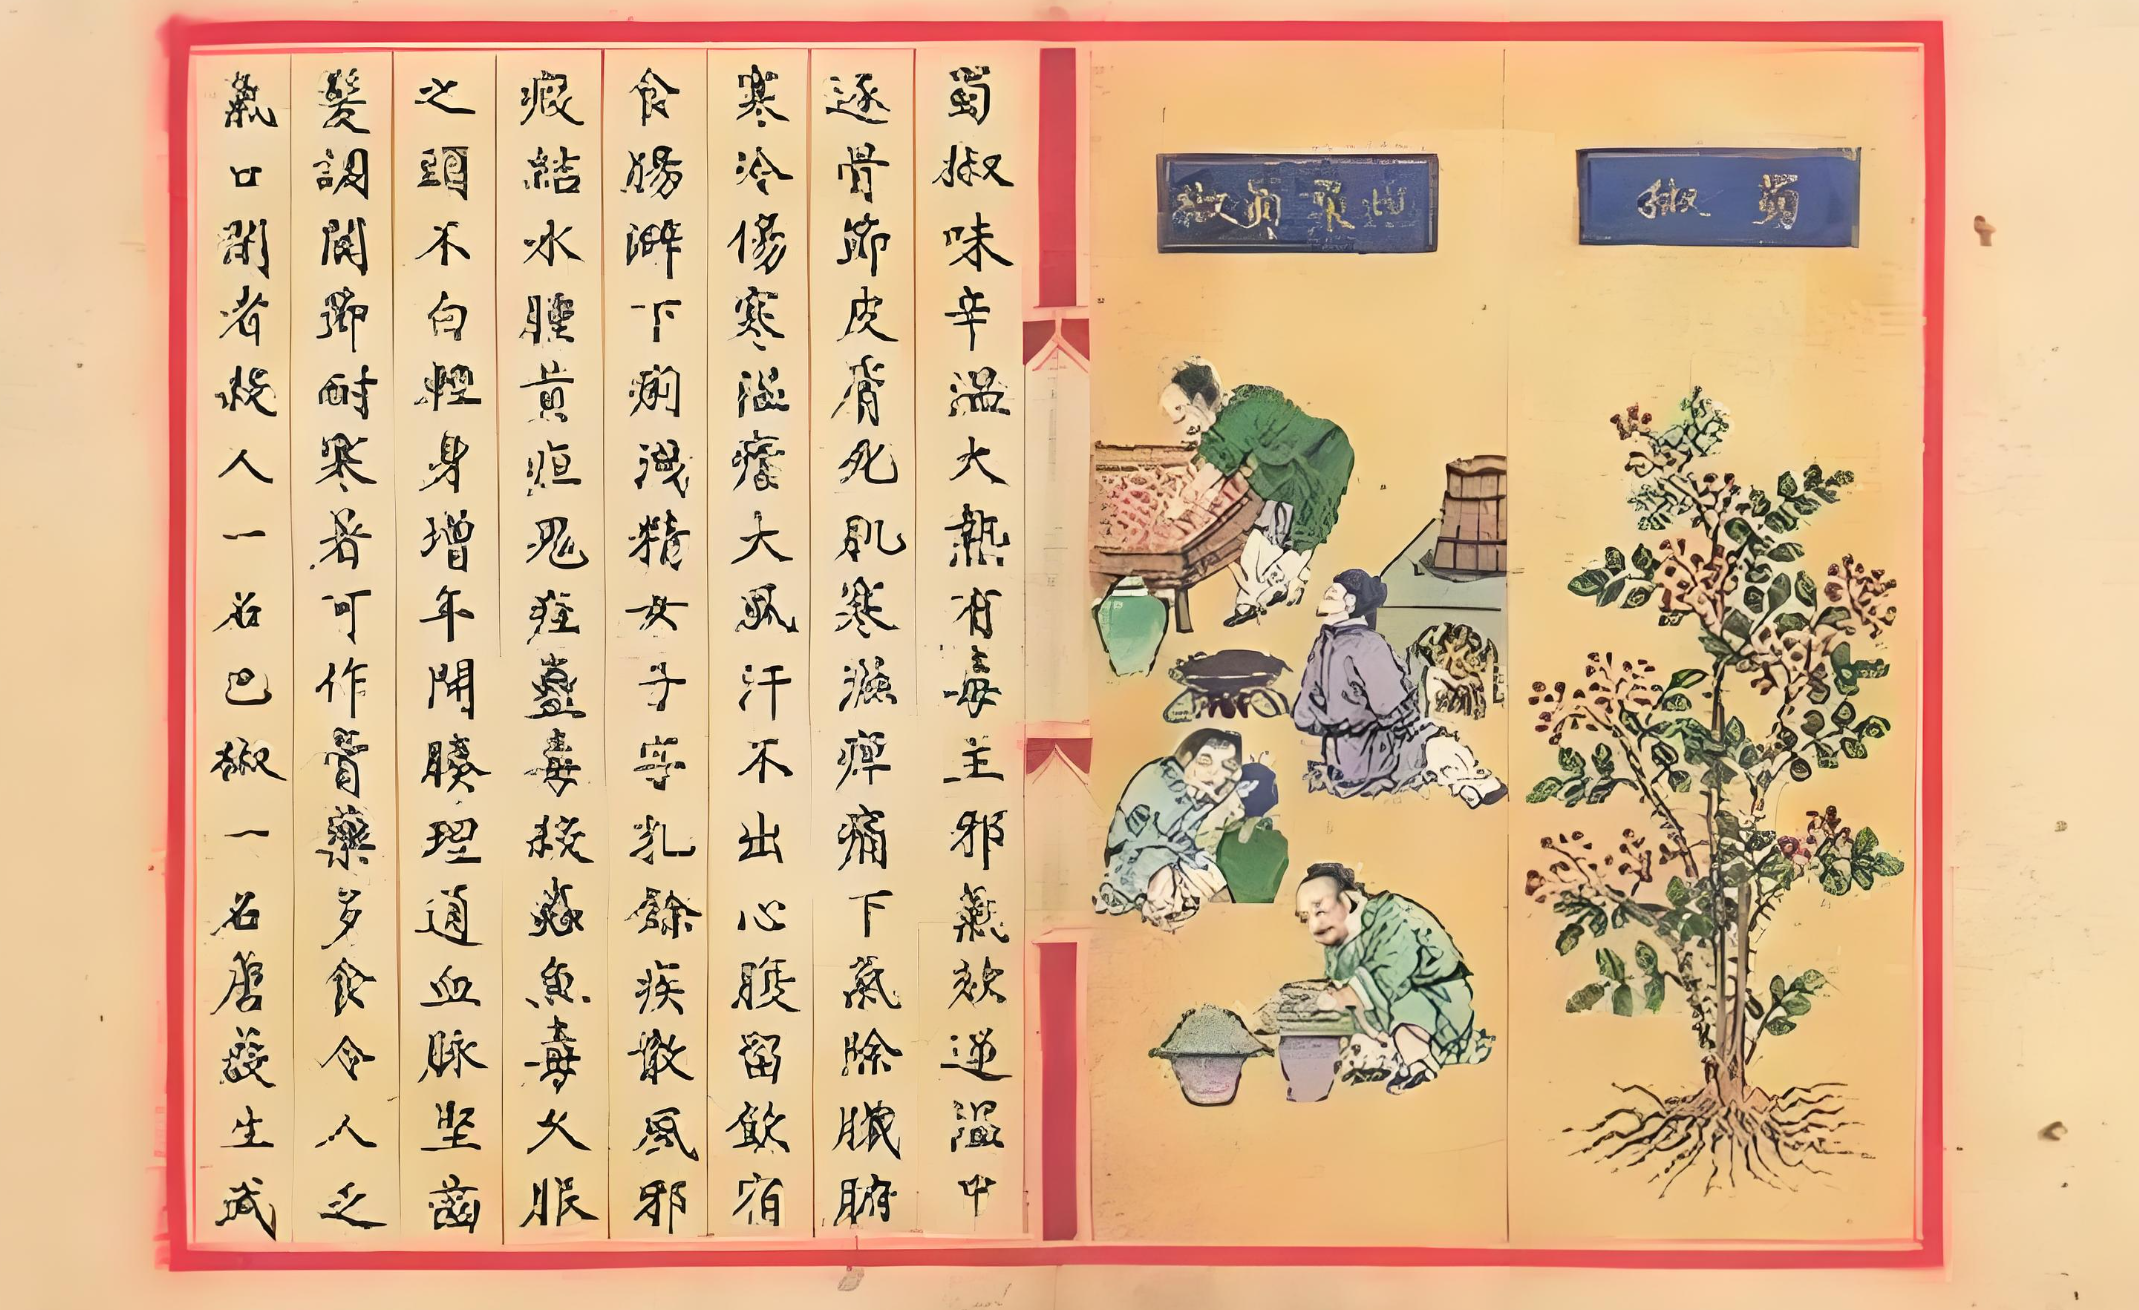 蜀椒
蜀椒味辛温大熱有毒主邪氣欬逆温中
逐骨節皮膚死肌寒濕痺痛下氣除臟腑
寒冷傷寒温瘧大風汗不出心腹留飲宿
食腸澼下痢洩精女子字乳餘疾散風邪
瘕結水腫黃疸鬼疰蠱毒殺蟲魚毒久服
之頭不白輕身增年開腠理通血脉堅齒
髮調關節耐寒暑可作膏藥多食令人乏
氣口閉者殺人一名巴椒一名蓎藙生武